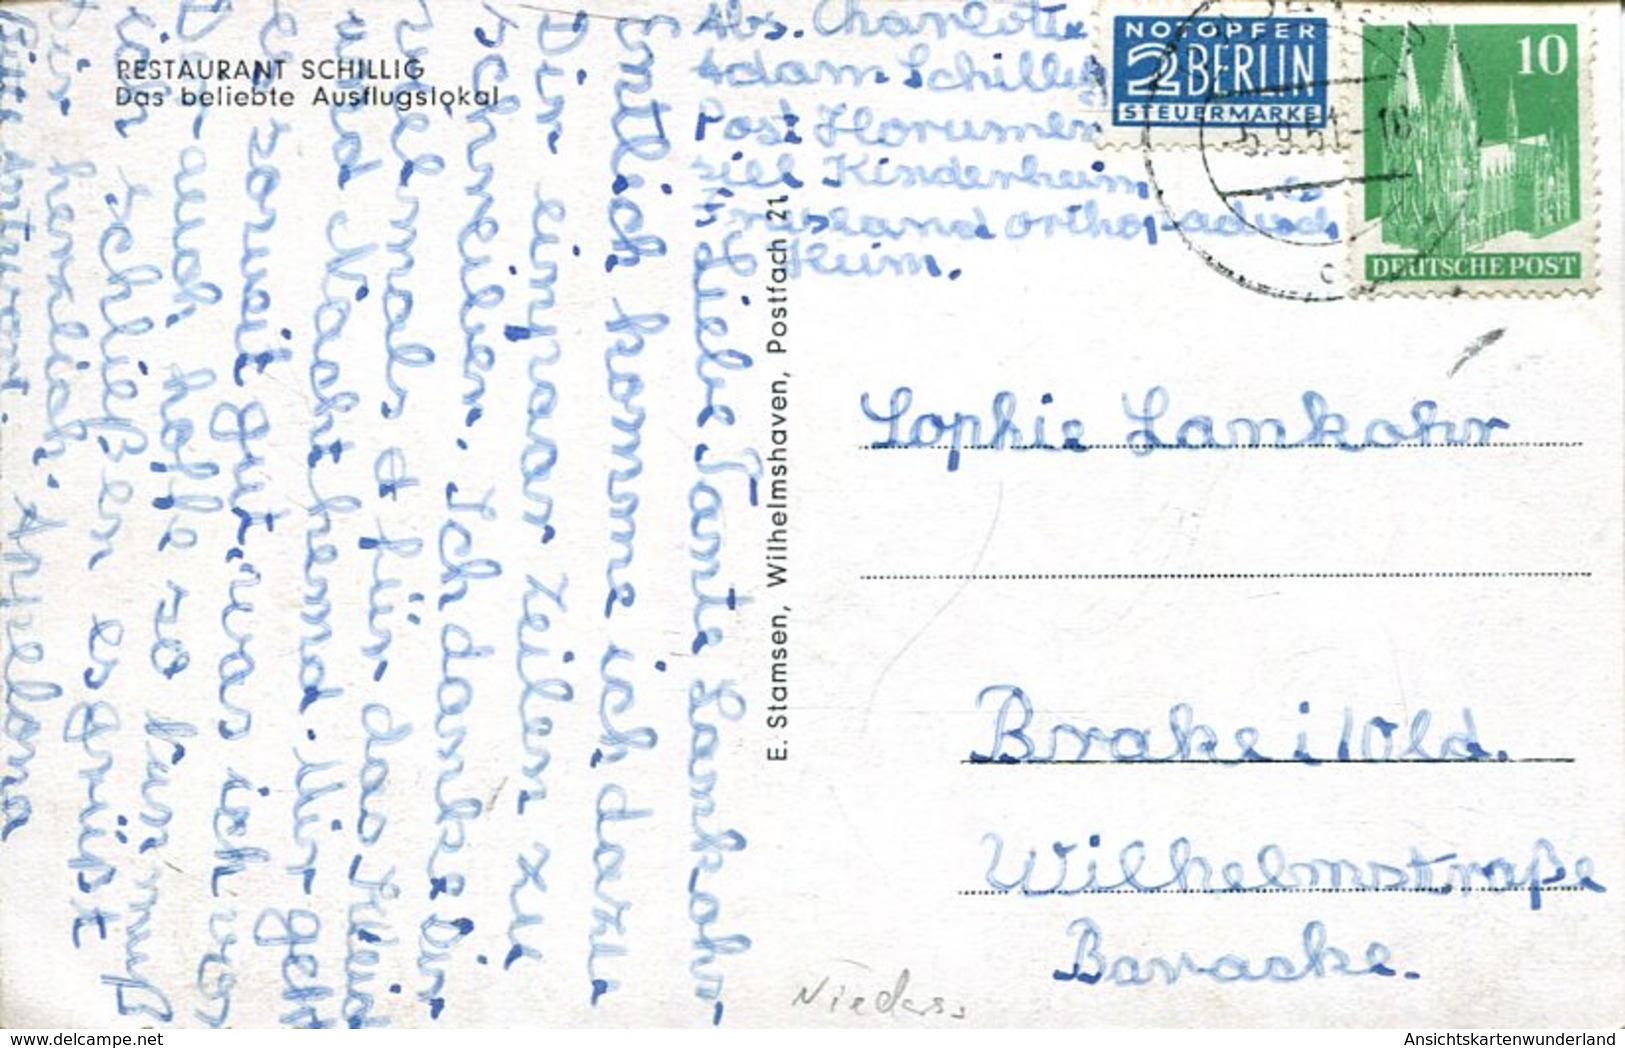 RESTAURANT SCHILLIG
Das beliebte Ausflugslokal
Abs. Charlotte
Adam Schillig
Post Horumer
siel Kinderheim
Frisland orthopädisch
Heim.
NOTOPFER
2 BERLIN
STEUERMARKE
5.9.51-18
10
DEUTSCHE POST
Liebe Tante Lankohr
Entlich komme ich dazu
Dir ein paar Zeilen zu
schreiben. Ich danke Dir
vielmals für das Kleid
und Nachthemd. Mir geht
es soweit gut, was ich von
Dir auch hoffe so nun muß
ich schließen es grüßt
Dir herzlich
Bitte Antwort.
E. Stamsen, Wilhelmshaven, Postfach 21
Sophie Lankohr
Brake i/Old.
Wilhelmstraße
Baracke.
Nieders.
www.delcampe.net
Ansichtskartenwunderland